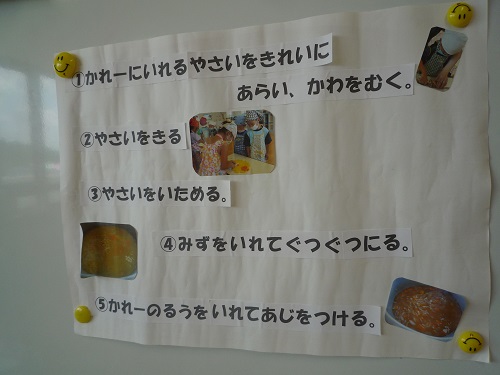 ①かれーにいれるやさいをきれいに
あらい、かわをむく。
②やさいをきる
③やさいをいためる。
④みずをいれてぐつぐつにる。
⑤かれーのるうをいれてあじをつける。